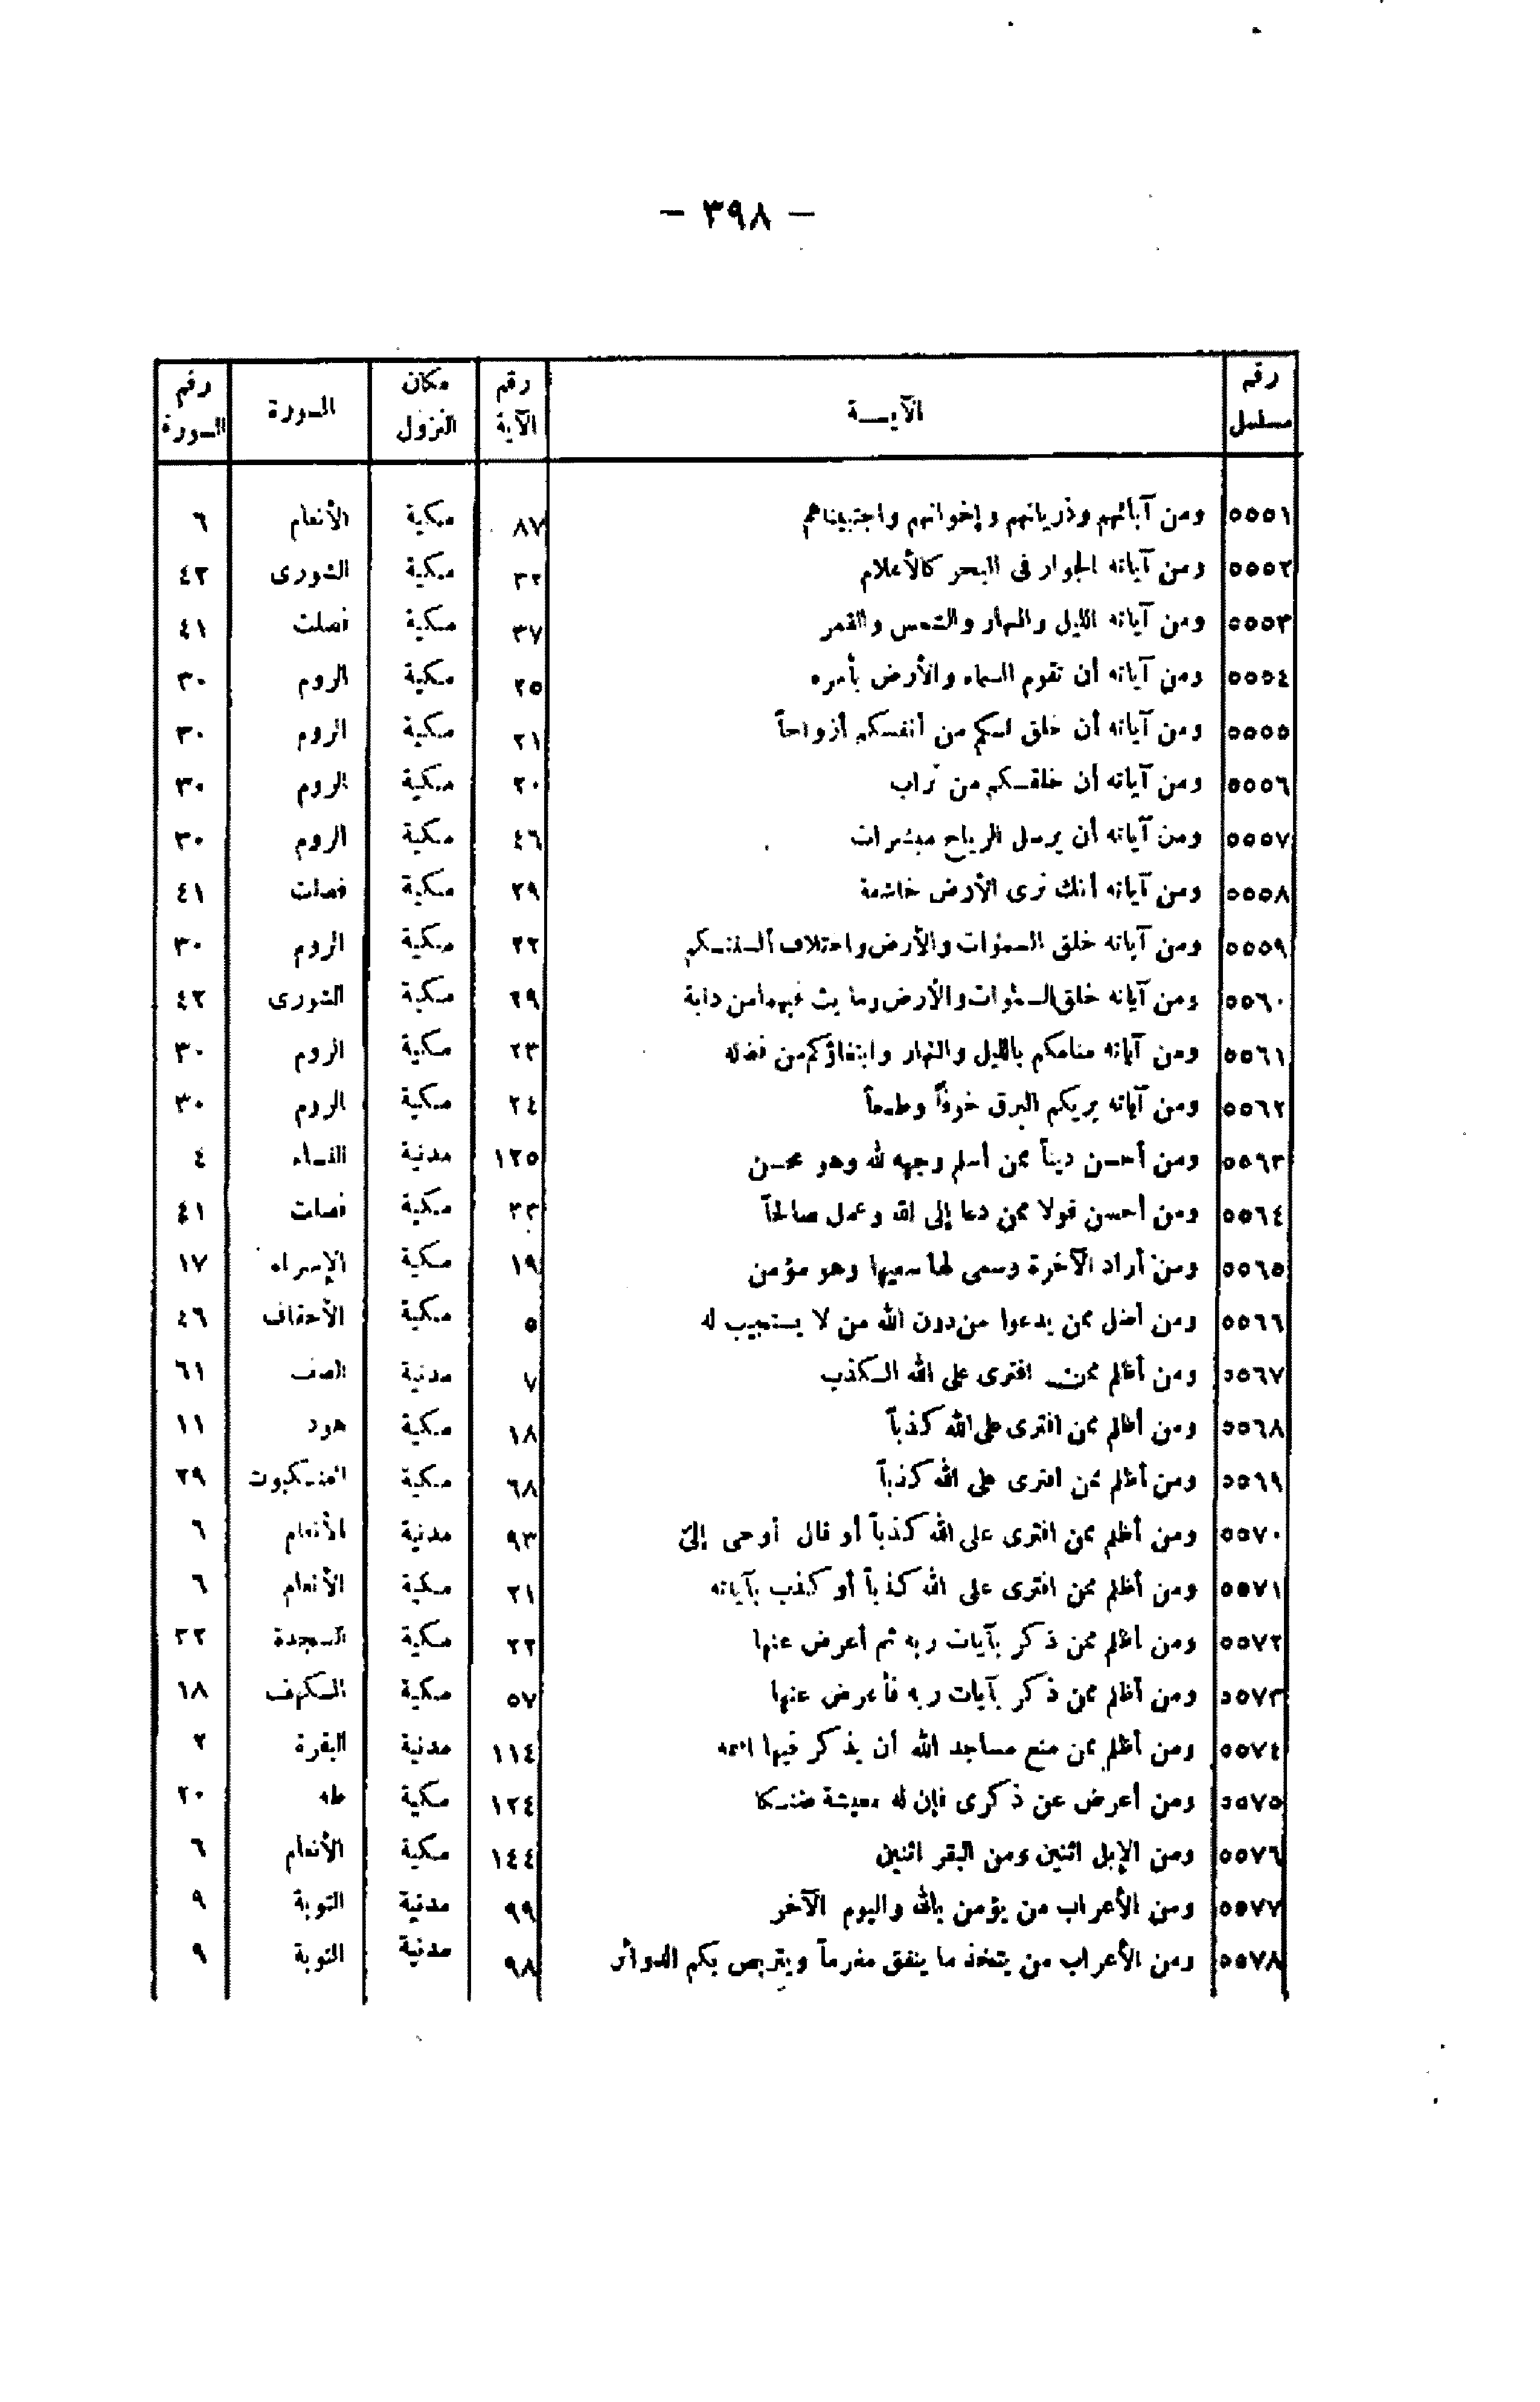 — ٣٩٨ —
رقم مسلسل | الآيــة | رقم الآية | مكان النزول | السورة | رقم السورة
٥٥٥١ ومن آبائهم وذرياتهم وإخوانهم واجتبيناهم ٨٧ مكية الأنعام ٦
٥٥٥٢ ومن آياته الجوار فى البحر كالأعلام ٣٢ مكية الشورى ٤٢
٥٥٥٣ ومن آياته الليل والنهار والشمس والقمر ٣٧ مكية فصلت ٤١
٥٥٥٤ ومن آياته أن تقوم السماء والأرض بأمره ٢٥ مكية الروم ٣٠
٥٥٥٥ ومن آياته أن خلق لكم من أنفسكم أزواجاً ٢١ مكية الروم ٣٠
٥٥٥٦ ومن آياته أن خلقكم من تراب ٢٠ مكية الروم ٣٠
٥٥٥٧ ومن آياته أن يرسل الرياح مبشرات ٤٦ مكية الروم ٣٠
٥٥٥٨ ومن آياته أنك ترى الأرض خاشعة ٣٩ مكية فصلت ٤١
٥٥٥٩ ومن آياته خلق السمٰوات والأرض واختلاف ألسنتكم ٢٢ مكية الروم ٣٠
٥٥٦٠ ومن آياته خلق السمٰوات والأرض وما بث فيهما من دابة ٢٩ مكية الشورى ٤٢
٥٥٦١ ومن آياته منامكم بالليل والنهار وابتغاؤكم من فضله ٢٣ مكية الروم ٣٠
٥٥٦٢ ومن آياته يريكم البرق خوفاً وطمعاً ٢٤ مكية الروم ٣٠
٥٥٦٣ ومن أحسن ديناً ممن أسلم وجهه لله وهو محسن ١٢٥ مدنية النساء ٤
٥٥٦٤ ومن أحسن قولا ممن دعا إلى الله وعمل صالحاً ٣٣ مكية فصلت ٤١
٥٥٦٥ ومن أراد الآخرة وسعى لها سعيها وهو مؤمن ١٩ مكية الإسراء ١٧
٥٥٦٦ ومن أضل ممن يدعوا من دون الله من لا يستجيب له ٥ مكية الأحقاف ٤٦
٥٥٦٧ ومن أظلم ممن افترى على الله الكذب ٧ مدنية الصف ٦١
٥٥٦٨ ومن أظلم ممن افترى على الله كذباً ١٨ مكية هود ١١
٥٥٦٩ ومن أظلم ممن افترى على الله كذباً ٦٨ مكية العنكبوت ٢٩
٥٥٧٠ ومن أظلم ممن افترى على الله كذباً أو قال أوحى إلىّ ٩٣ مدنية الأنعام ٦
٥٥٧١ ومن أظلم ممن افترى على الله كذباً أو كذب بآياته ٢١ مكية الأنعام ٦
٥٥٧٢ ومن أظلم ممن ذكر بآيات ربه ثم أعرض عنها ٢٢ مكية السجدة ٣٢
٥٥٧٣ ومن أظلم ممن ذكر بآيات ربه فأعرض عنها ٥٧ مكية الكهف ١٨
٥٥٧٤ ومن أظلم ممن منع مساجد الله أن يذكر فيها اسمه ١١٤ مدنية البقرة ٢
٥٥٧٥ ومن أعرض عن ذكرى فإن له معيشة ضنكا ١٢٤ مكية طه ٢٠
٥٥٧٦ ومن الإبل اثنين ومن البقر اثنين ١٤٤ مكية الأنعام ٦
٥٥٧٧ ومن الأعراب من يؤمن بالله واليوم الآخر ٩٩ مدنية التوبة ٩
٥٥٧٨ ومن الأعراب من يتخذ ما ينفق مغرماً ويتربص بكم الدوائر ٩٨ مدنية التوبة ٩